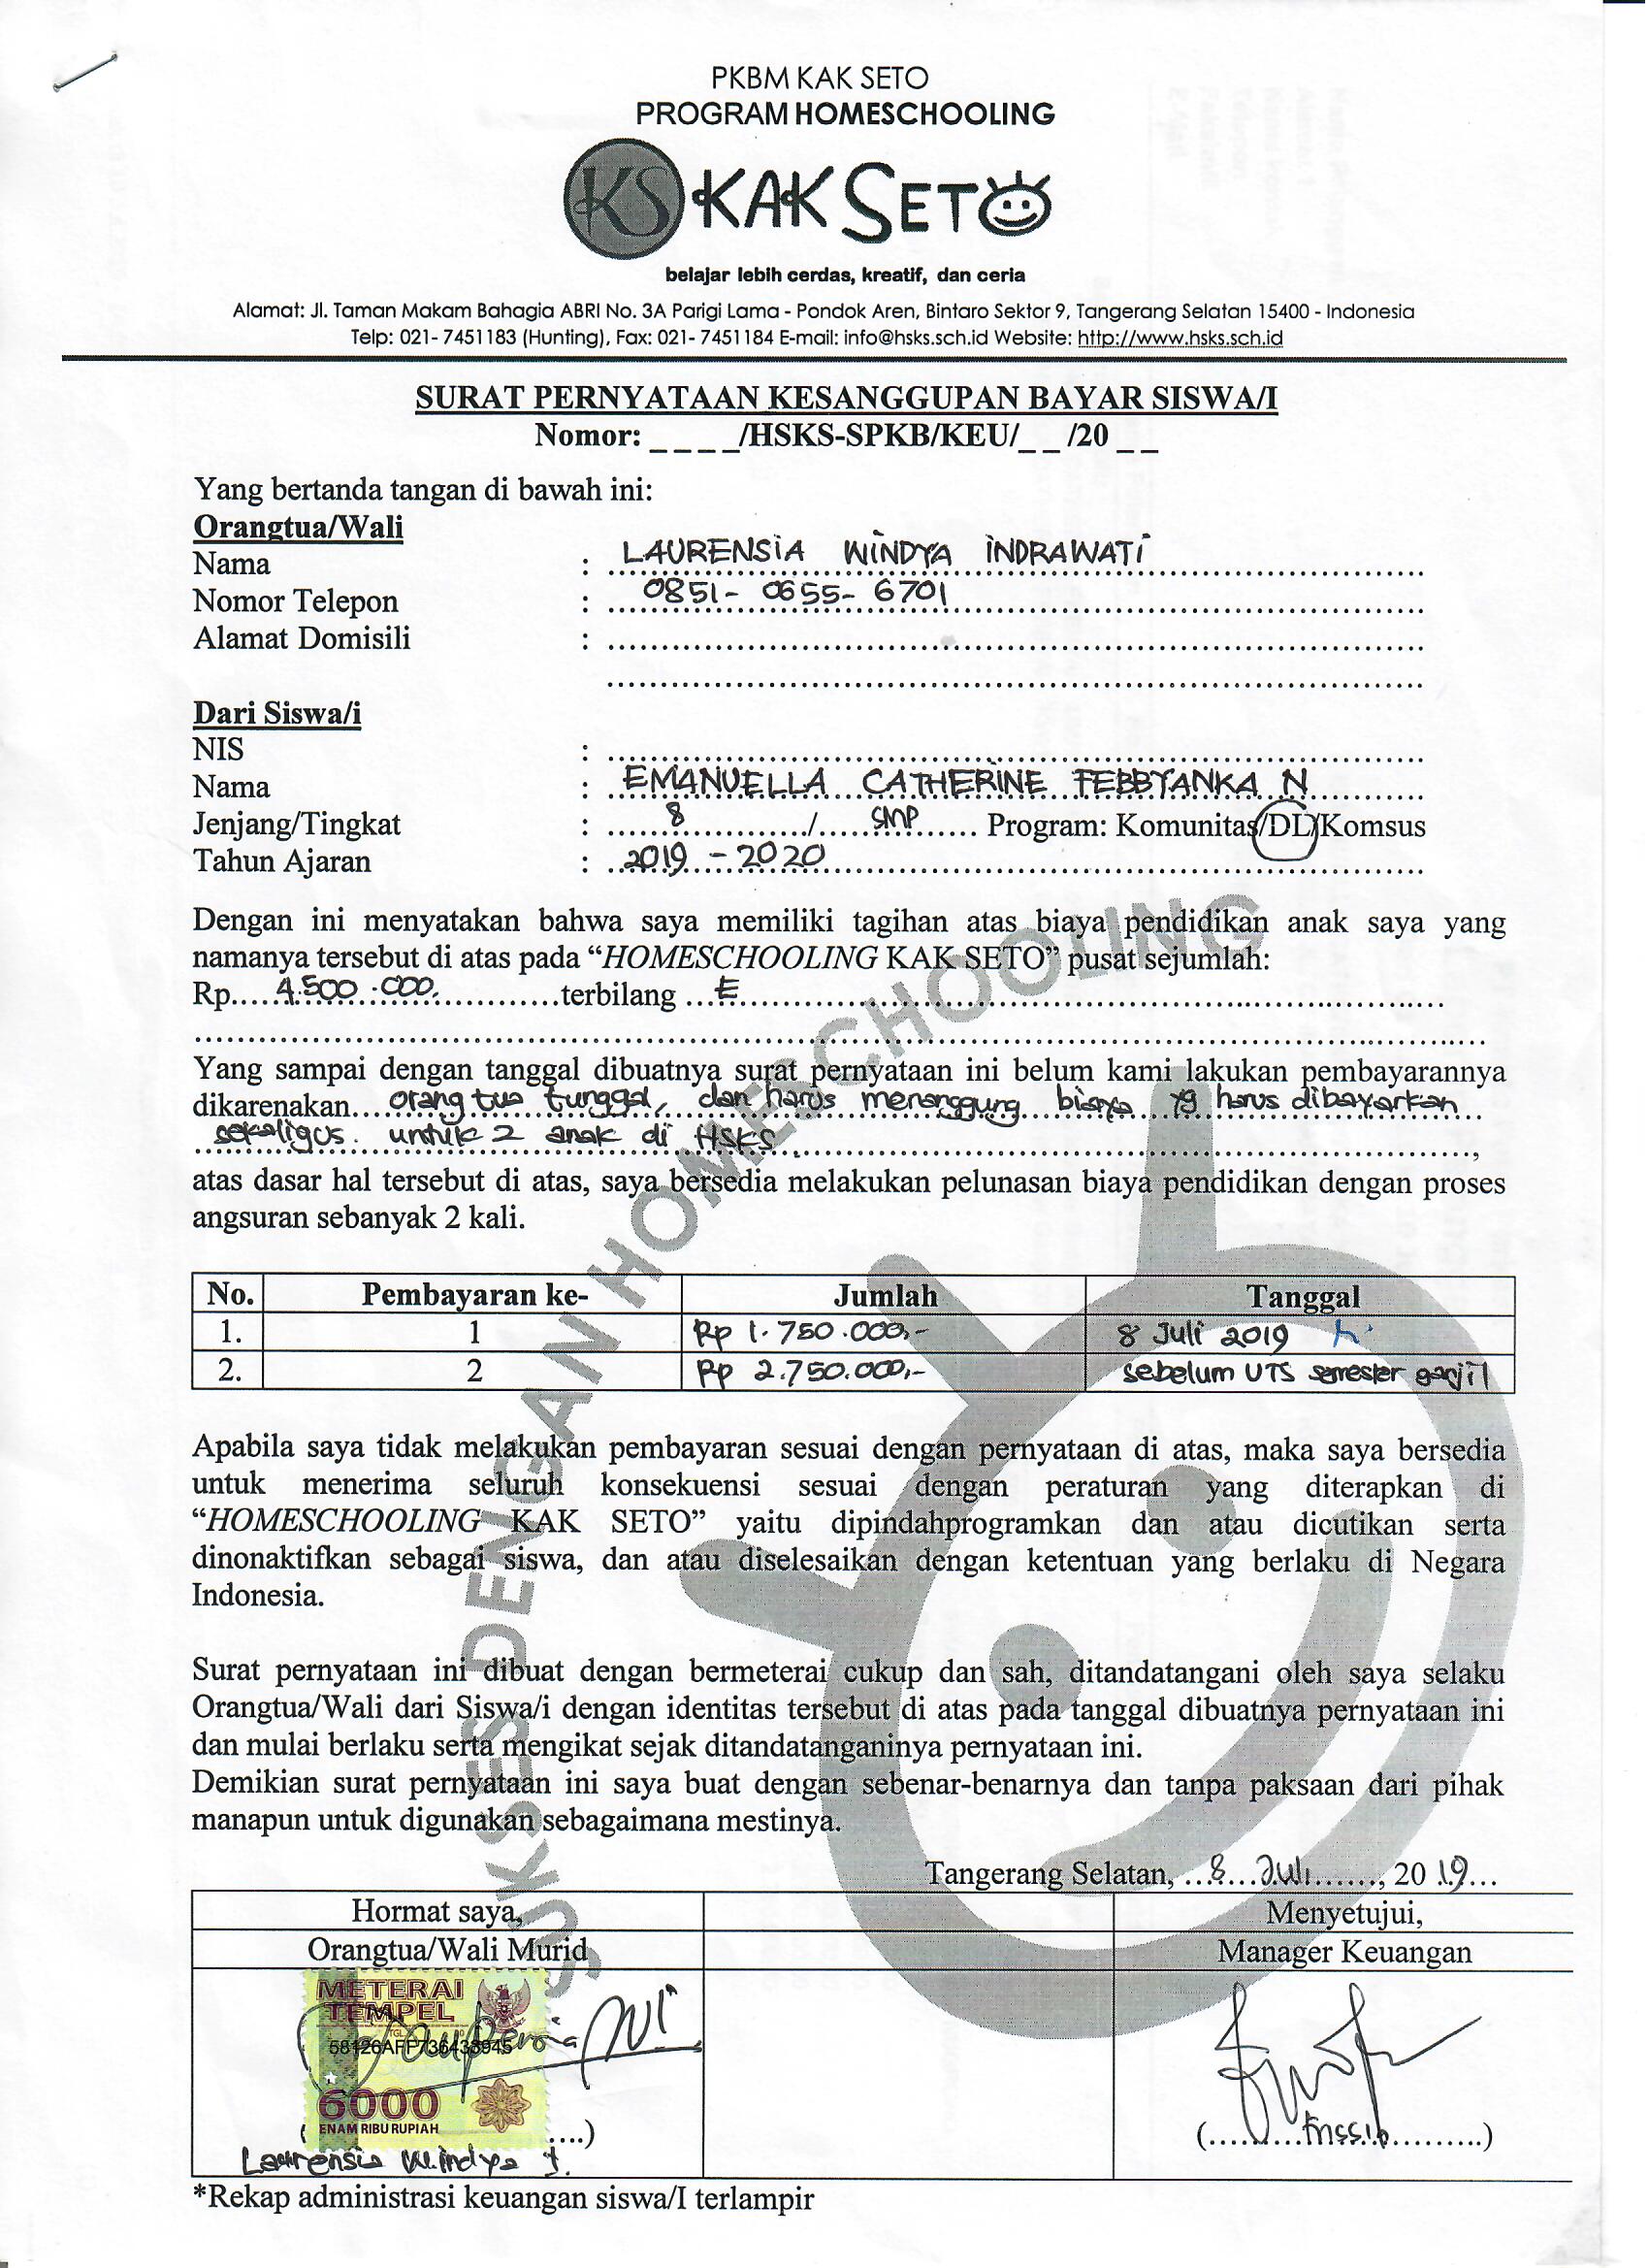 PKBM KAK SETO
PROGRAM HOMESCHOOLING
KS KAK SETO
belajar lebih cerdas, kreatif, dan ceria
Alamat: Jl. Taman Makam Bahagia ABRI No. 3A Parigi Lama - Pondok Aren, Bintaro Sektor 9, Tangerang Selatan 15400 - Indonesia
Telp: 021- 7451183 (Hunting), Fax: 021- 7451184 E-mail: info@hsks.sch.id Website: http://www.hsks.sch.id
SURAT PERNYATAAN KESANGGUPAN BAYAR SISWA/I
Nomor: _ _ _ _/HSKS-SPKB/KEU/_ _ /20 _ _
Yang bertanda tangan di bawah ini:
Orangtua/Wali
Nama : LAURENSIA WINDYA INDRAWATI
Nomor Telepon : 0851- 0655- 6701
Alamat Domisili :
Dari Siswa/i
NIS :
Nama : EMANUELLA CATHERINE FEBBYANKA N
Jenjang/Tingkat : 8 / SMP Program: Komunitas/DL/Komsus
Tahun Ajaran : 2019 - 2020
Dengan ini menyatakan bahwa saya memiliki tagihan atas biaya pendidikan anak saya yang
namanya tersebut di atas pada “HOMESCHOOLING KAK SETO” pusat sejumlah:
Rp. 4.500.000, terbilang
Yang sampai dengan tanggal dibuatnya surat pernyataan ini belum kami lakukan pembayarannya
dikarenakan orang tua tunggal, dan harus menanggung biaya yg harus dibayarkan
sekaligus untuk 2 anak di HSKS ,
atas dasar hal tersebut di atas, saya bersedia melakukan pelunasan biaya pendidikan dengan proses
angsuran sebanyak 2 kali.
No. Pembayaran ke- Jumlah Tanggal
1. 1 Rp 1.750.000,- 8 Juli 2019
2. 2 Rp 2.750.000,- sebelum UTS semester ganjil
Apabila saya tidak melakukan pembayaran sesuai dengan pernyataan di atas, maka saya bersedia
untuk menerima seluruh konsekuensi sesuai dengan peraturan yang diterapkan di
“HOMESCHOOLING KAK SETO” yaitu dipindahprogramkan dan atau dicutikan serta
dinonaktifkan sebagai siswa, dan atau diselesaikan dengan ketentuan yang berlaku di Negara
Indonesia.
Surat pernyataan ini dibuat dengan bermeterai cukup dan sah, ditandatangani oleh saya selaku
Orangtua/Wali dari Siswa/i dengan identitas tersebut di atas pada tanggal dibuatnya pernyataan ini
dan mulai berlaku serta mengikat sejak ditandatanganinya pernyataan ini.
Demikian surat pernyataan ini saya buat dengan sebenar-benarnya dan tanpa paksaan dari pihak
manapun untuk digunakan sebagaimana mestinya.
Tangerang Selatan, 8 Juli, 2019
Hormat saya, Menyetujui,
Orangtua/Wali Murid Manager Keuangan
METERAI
TEMPEL
TGL
58126AFF736433945
6000
ENAM RIBU RUPIAH
Laurensia Windya I.
*Rekap administrasi keuangan siswa/I terlampir
SUKSES DENGAN HOMESCHOOLING